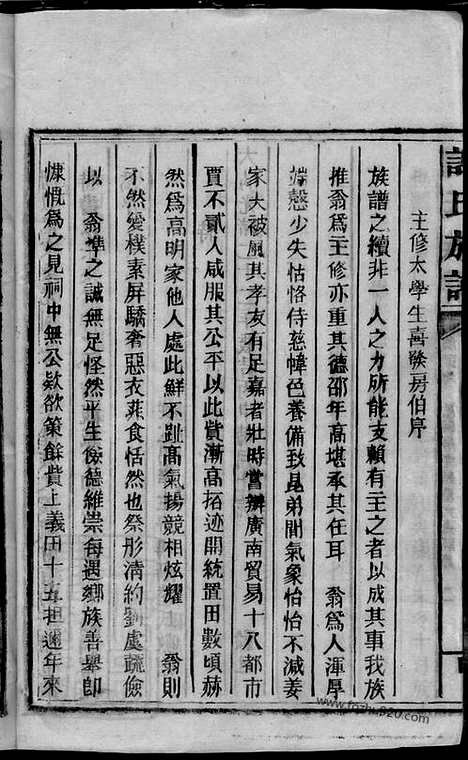 氏族譜
主修太學生喜燧房伯序
族譜之續非一人之力所能支賴有主之者以成其事我族
推翁為主修亦重其德邵年高堪承其任耳 翁為人渾厚
端慤少失怙恪侍慈幃色養備致昆弟間氣象怡怡不減姜
家大被風其孝友有足嘉者壯時嘗辦廣南貿易十八都市
賈不貳人咸服其公平以此貲漸高拓迹開統置田數頃赫
然為高明家他人處此鮮不趾高氣揚競相炫耀 翁則
不然愛樸素屏驕奢惡衣菲食恬然也祭形清約劉處蔬儉
以 翁準之誠無足怪然平生儉德維崇每遇鄉族善舉即
慷慨為之見祠中無公欵欲策餘貲上義田十五担邇年來
www.fozhu920.com